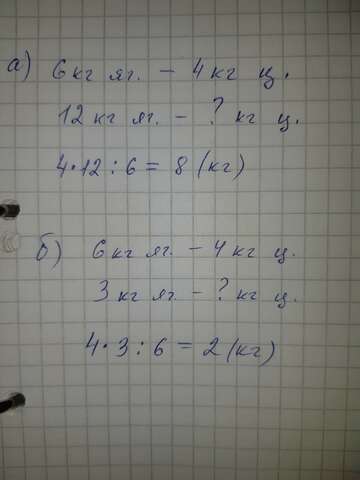 а) 6 кг яг. - 4 кг ц.
12 кг яг. - ? кг ц.
4·12:6 = 8 (кг)
б) 6 кг яг. - 4 кг ц.
3 кг яг. - ? кг ц.
4·3:6 = 2 (кг)